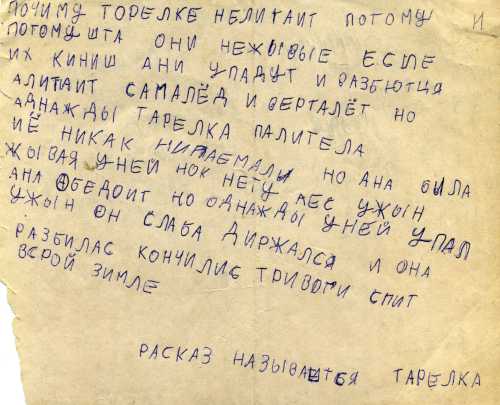 ПОЧИМУ ТОРЕЛКЕ НЕЛИТАИТ ПОТОМУ И
ПОТОМУ ШТА ОНИ НЕЖЫВЫЕ ЕСЛЕ
ИХ КИНИШ АНИ УПАДУТ И РАЗБЮТЦЯ
АЛИТАИТ САМАЛЁД И ВЕРТАЛЁТ НО
АДНАЖДЫ ТАРЕЛКА ПАЛИТЕЛА
ИЁ НИКАК НИПАЕМАЛИ НО АНА БЫЛА
ЖЫВАЯ УНЕЙ НОК НЕТУ ЛЕС УЖЫН
АНА ОБЕДОИТ НО ОДНАЖДЫ УНЕЙ УПАЛ
УЖЫН ОН СЛАБА ДИРЖАЛСЯ И ОНА
РАЗБИЛАС КОНЧИЛИС ТРИВОГИ СПИТ
ВСРОЙ ЗИМЛЕ
РАСКАЗ НАЗЫВАЕТСЯ ТАРЕЛКА